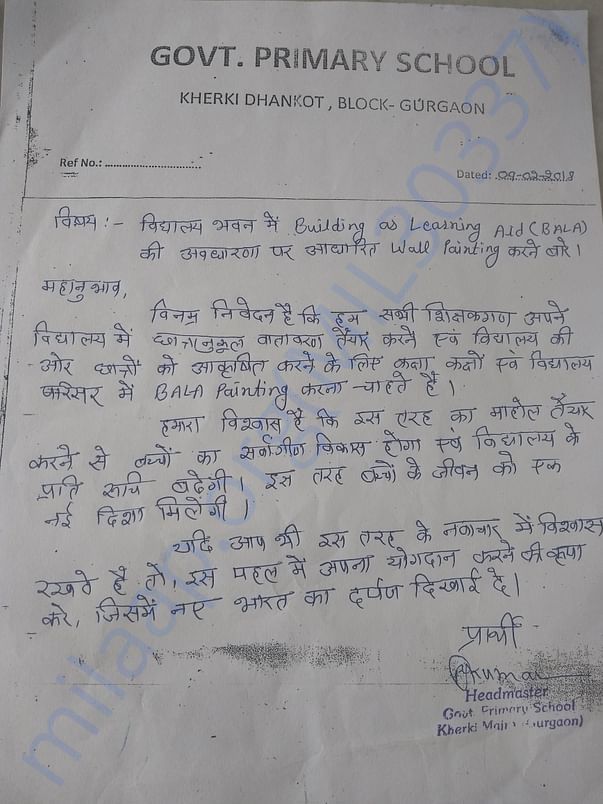 GOVT. PRIMARY SCHOOL
KHERKI DHANKOT, BLOCK- GURGAON
Ref No.: ..............................
Dated: 09-02-2018
विषय :- विद्यालय भवन में Building as Learning Aid (BALA)
की अवधारणा पर आधारित Wall Painting करने बारे।
महानुभाव,
विनम्र निवेदन है कि हम सभी शिक्षकगण अपने
विद्यालय में छात्रानुकूल वातावरण तैयार करने एवं विद्यालय की
ओर छात्रों को आकृषित करने के लिए कक्षा कक्षों एवं विद्यालय
परिसर में BALA Painting करना चाहते है।
हमारा विश्वास है कि इस तरह का माहोल तैयार
करने से बच्चों का सर्वांगीण विकास होगा एवं विद्यालय के
प्रति रूचि बढेगी। इस तरह बच्चों के जीवन को एक
नई दिशा मिलेंगी।
यदि आप भी इस तरह के नवाचार में विश्वास
रखते है तो, इस पहल में अपना योगदान करने की कृपा
करे, जिसमें नए भारत का दर्पण दिखाई दे।
प्रार्थी
Kumar
Headmaster
Govt. Primary School
Kherki Majra (Gurgaon)
milaap.org